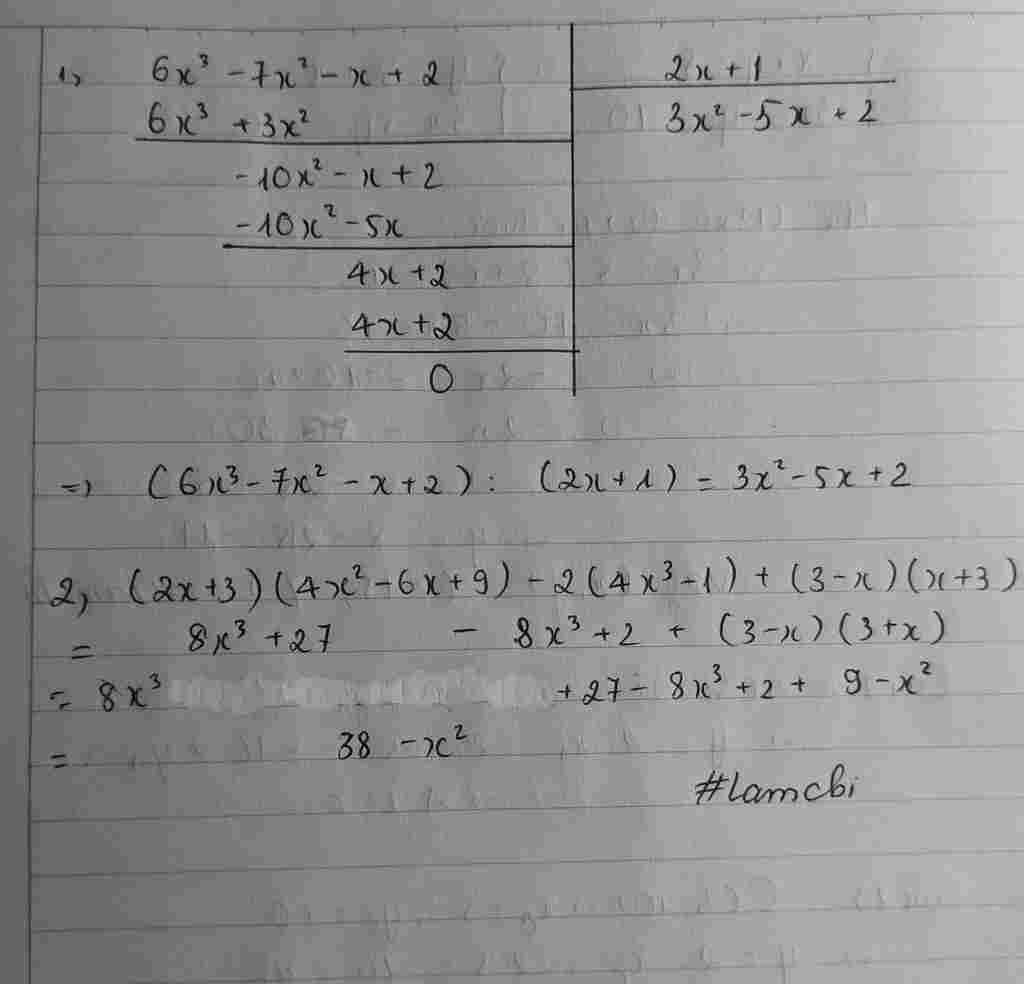 1, 6x³ - 7x² - x + 2 | 2x + 1
6x³ + 3x² | 3x² - 5x + 2
-10x² - x + 2
-10x² - 5x
4x + 2
4x + 2
0
=> (6x³ - 7x² - x + 2) : (2x + 1) = 3x² - 5x + 2
2, (2x+3)(4x² - 6x + 9) - 2(4x³ - 1) + (3 - x)(x + 3)
= 8x³ + 27 - 8x³ + 2 + (3 - x)(3 + x)
= 8x³ + 27 - 8x³ + 2 + 9 - x²
= 38 - x²
#lamchi